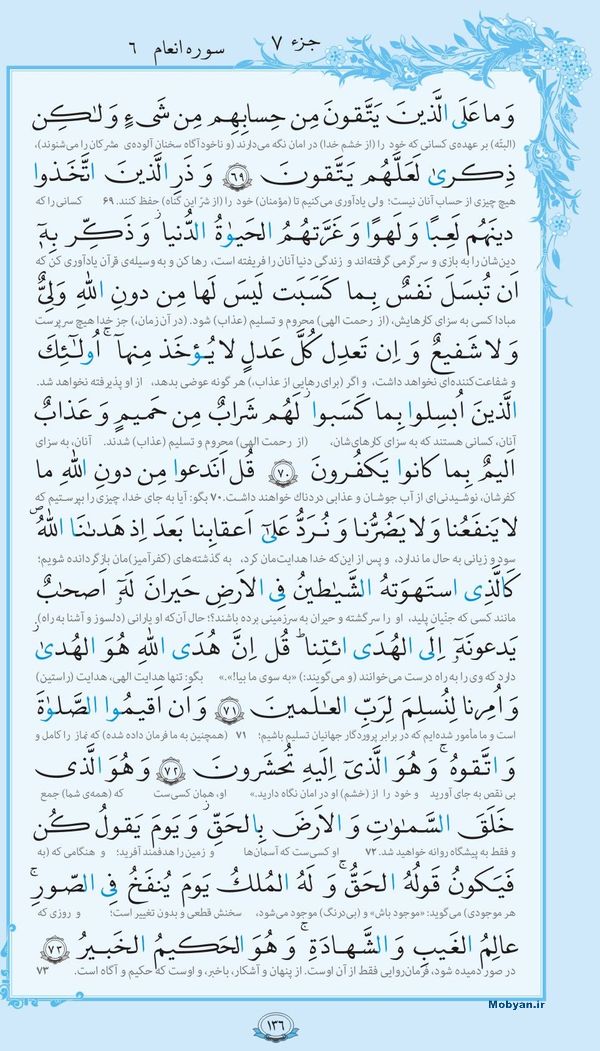 جزء ۷
سوره انعام ۶
وَ ما عَلَی الَّذینَ یَتَّقونَ مِن حِسابِهِم مِن شَیءٍ وَ لٰکِن
(البتّه) بر عهده‌ی کسانی که خود را (از خشم خدا) در امان نگه می‌دارند (و ناخودآگاه سخنان آلوده‌ی مشرکان را می‌شنوند)،
ذِکریٰ لَعَلَّهُم یَتَّقونَ ﴿۶۹﴾ وَ ذَرِ الَّذینَ اتَّخَذوا
هیچ چیزی از حساب آنان نیست؛ ولی یادآوری می‌کنیم تا (مؤمنان) خود را (از شرّ این گناه) حفظ کنند. ۶۹ کسانی را که
دینَهُم لَعِبًا وَ لَهوًا وَ غَرَّتهُمُ الحَیوٰةُ الدُّنیا ۚ وَ ذَکِّر بِهٖٓ
دین‌شان را به بازی و سرگرمی گرفته‌اند و زندگی دنیا آنان را فریفته است، رها کن و به وسیله‌ی قرآن یادآوری کن که
اَن تُبسَلَ نَفسٌ بِما کَسَبَت لَیسَ لَها مِن دونِ اللّٰهِ وَلِیٌّ
مبادا کسی به سزای کارهایش، (از رحمت الهی) محروم و تسلیم (عذاب) شود. (در آن زمان،) جز خدا هیچ سرپرست
وَ لا شَفیعٌ وَ اِن تَعدِل کُلَّ عَدلٍ لا یُؤخَذ مِنهآ ۗ اُولٰٓئِکَ
و شفاعت کننده‌ای نخواهد داشت، و اگر (برای رهایی از عذاب،) هر گونه عوضی بدهد، از او پذیرفته نخواهد شد.
الَّذینَ اُبسِلوا بِما کَسَبوا ۖ لَهُم شَرابٌ مِن حَمیمٍ وَ عَذابٌ
آنان، کسانی هستند که به سزای کارهای‌شان، (از رحمت الهی) محروم و تسلیم (عذاب) شدند. آنان، به سزای
اَلیمٌ بِما کانوا یَکفُرونَ ﴿۷۰﴾ قُل اَنَدعوا مِن دونِ اللّٰهِ ما
کفرشان، نوشیدنی‌ای از آب جوشان و عذابی دردناک خواهند داشت. ۷۰ بگو: آیا به جای خدا، چیزی را بپرستیم که
لا یَنفَعُنا وَ لا یَضُرُّنا وَ نُرَدُّ عَلیٰٓ اَعقابِنا بَعدَ اِذ هَدٰىنَا اللّٰهُ
سود و زیانی به حال ما ندارد، و پس از این‌که خدا هدایت‌مان کرد، به گذشته‌های (کفرآمیز)مان بازگردانده شویم؛
کَالَّذِی استَهوَتهُ الشَّیٰطینُ فِی الاَرضِ حَیرانَ لَهٗٓ اَصحٰبٌ
مانند کسی که جنّیان پلید، او را سرگشته و حیران به سرزمینی برده باشند؟؛ حال آن‌که او یارانی (دلسوز و آشنا به راه)
یَدعونَهٗٓ اِلَی الهُدَی ائتِنا ۗ قُل اِنَّ هُدَی اللّٰهِ هُوَ الهُدیٰ ۖ
دارد که وی را به راه درست می‌خوانند (و می‌گویند:) «به سوی ما بیا!».» بگو: تنها هدایت الهی، هدایت (راستین)
وَ اُمِرنا لِنُسلِمَ لِرَبِّ العٰلَمینَ ﴿۷۱﴾ وَ اَن اَقیمُوا الصَّلوٰةَ
است و ما مأمور شده‌ایم که در برابر پروردگار جهانیان تسلیم باشیم؛ ۷۱ (همچنین به ما فرمان داده شده) که نماز را کامل و
وَ اتَّقوهُ ۚ وَ هُوَ الَّذیٓ اِلَیهِ تُحشَرونَ ﴿۷۲﴾ وَ هُوَ الَّذی
بی نقص به جای آورید و خود را از (خشم) او در امان نگاه دارید.» او، همان کسی‌ست که (همه‌ی شما) جمع
خَلَقَ السَّمٰوٰتِ وَ الاَرضَ بِالحَقِّ ۖ وَ یَومَ یَقولُ کُن
و فقط به پیشگاه روانه خواهید شد. ۷۲ او کسی‌ست که آسمان‌ها و زمین را هدفمند آفرید؛ و هنگامی که (به
فَیَکونُ قَولُهُ الحَقُّ ۚ وَ لَهُ المُلکُ یَومَ یُنفَخُ فِی الصّورِ ۚ
هر موجودی) می‌گوید: «موجود باش» و (بی‌درنگ) موجود می‌شود، سخنش قطعی و بدون تغییر است؛ و روزی که
عالِمُ الغَیبِ وَ الشَّهادَةِ ۚ وَ هُوَ الحَکیمُ الخَبیرُ ﴿۷۳﴾
در صور دمیده شود، فرمان‌روایی فقط از آن اوست. از پنهان و آشکار، باخبر، و اوست که حکیم و آگاه است. ۷۳
Mobyan.ir
۱۳۶